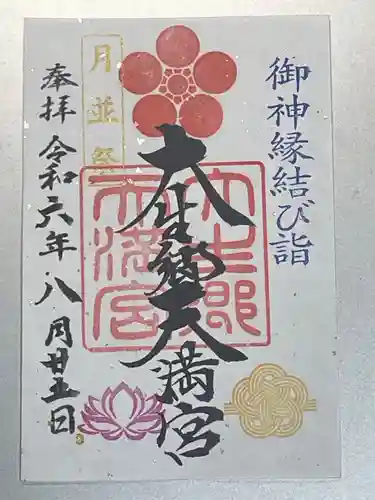 御神縁結び詣
大生郷天満宮
大生郷天満宮
月並祭
奉拝 令和六年八月廿五日